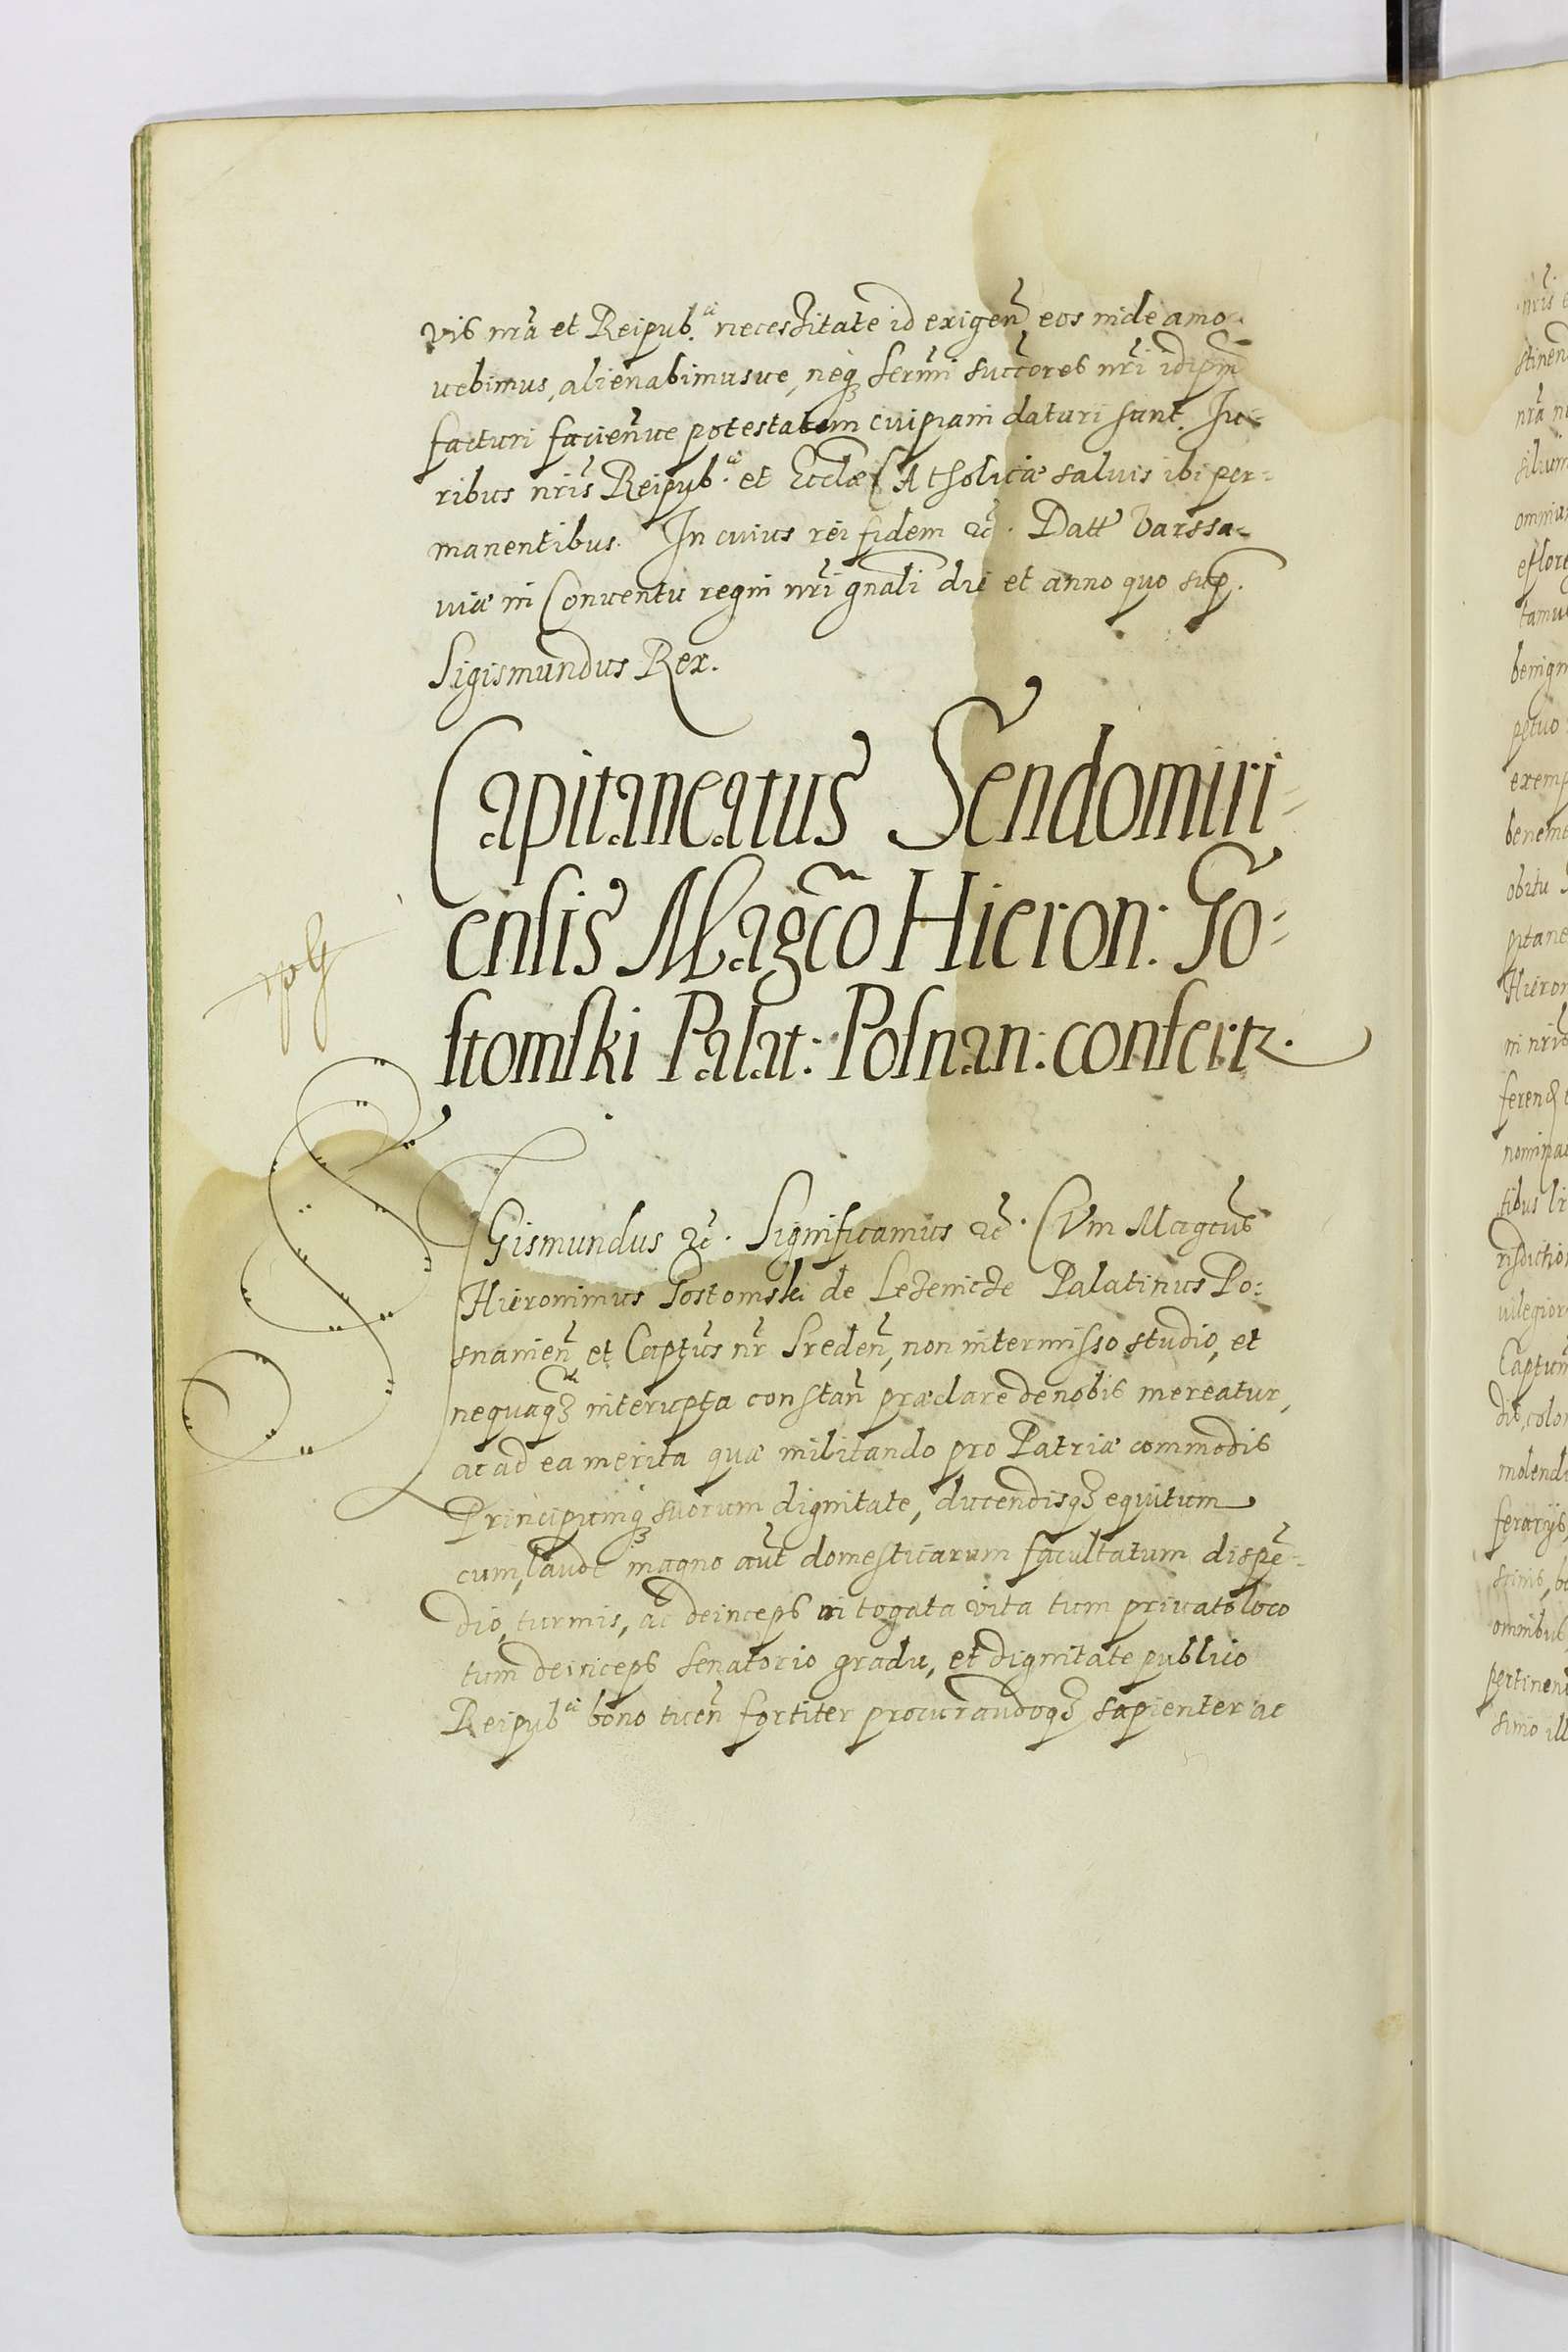 vis nr̃a et Reipub.ᶜᵃ necessitate id exigeñ eos inde amo-
uebimus, alienabimusue, neq̨ Serm̃i succ̃ores nr̃i idip̃m
facturi facieñue potestatem cuipiam daturi sunt. Iu-
ribus nr̃is Reipub.ᶜᵃ et Eccłæ CAtholicæ saluis ibi per-
manentibus. In cuius rei fidem ꝛc̃. Datt Varssa-
uiæ in Conuentu regni nr̃i gñali die et anno quo sup.
Sigismundus Rex.
Capitaneatus Sendomiri-
ensis Magc̃o Hieron: Go-
stomski Palat: Posnan: confertꝛ.
SIGismundus ꝛc̃. Significamus ꝛc̃. CVm Magc̃us
Hieronimus Gostomski de Lezenicze Palatinus Po:
snanieñ et Capt̃us nr̃ Sredeñ, non intermisso studio, et
nequaqꝫ interupta constañ præclare de nobis mereatur,
ac ad ea merita quæ militando pro Patriæ commodis
Principumqꝫ suorum dignitate, ducendisqꝫ equitum
cum laude magno aut̃ domesticarum facultatum dispẽ-
dio, turmis, ac deinceps in togata vita tum priuato loco
tum deinceps senatorio gradu, et dignitate publico
Reipubᶜᵃ bono tueñ fortiter procurandoqꝫ sapienter ac